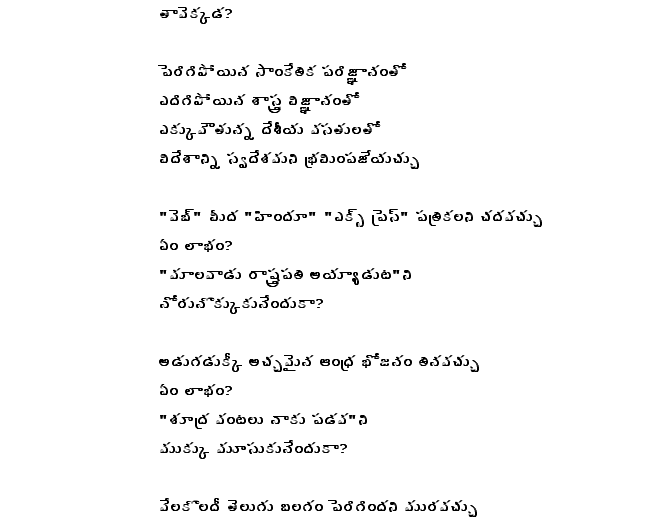 తావెక్కడ?
పెరిగిపోయిన సాంకేతిక పరిజ్ఞానంతో
ఎదిగిపోయిన శాస్త్ర విజ్ఞానంతో
ఎక్కువౌతున్న దేశీయ వసతులతో
విదేశాన్ని స్వదేశమని భ్రమింపజేయచ్చు
"వెబ్" మీద "హిందూ" "ఎక్స్ ప్రెస్" పత్రికలని చదవచ్చు
ఏం లాభం?
"మాలవాడు రాష్ట్రపతి అయ్యాడుట"ని
నోరునొక్కుకునేందుకా?
అడుగడుక్కీ అచ్చమైన ఆంధ్ర భోజనం తినవచ్చు
ఏం లాభం?
"శూద్ర వంటలు నాకు పడవ"ని
ముక్కు మూసుకునేందుకా?
వేలకొలదీ తెలుగు బలగం పెరిగిందని మురవచ్చు